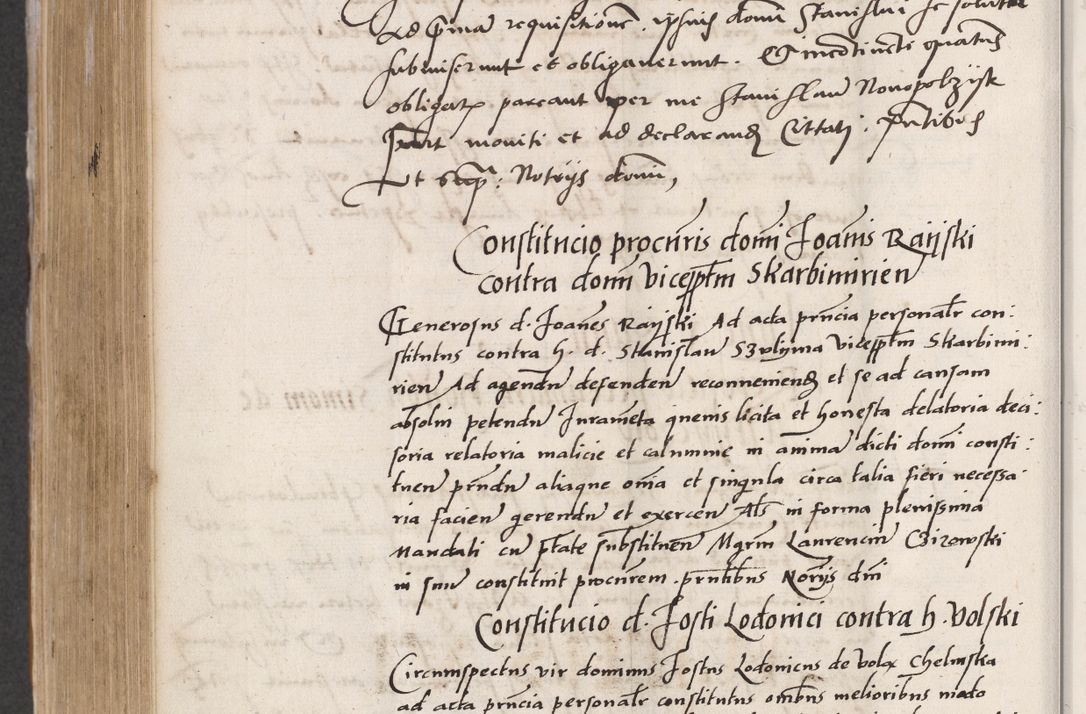 Ad p͞ma requisitione͞ ipsius domi͞ Stanislai se solut
submiserunt et obligaverunt. Et incōtinēti quatenus
obligat͞ pareant per me Stanislau͞ Novopolzysk
sunt moniti et ad declarand͞ Cittati: p͞ntibus
Ut sup͞ra: Not͞rijs domi͞,
Constitucio procu͞ris domi͞ Joan͞is Raijski
contra dom͞ vicep͞ptm Skarbimirien͞
Generosus d. Joan͞es Raijski Ad acta pr͞ncia personal͞r con:
stitutus contra h. d. Stanislau͞ Szulyma vicep͞ptm Skarbimi:
rien͞ Ad agendu͞ defenden͞ reconneniend͞ et se ad causam
absolvi petendu͞ Juram͞eta quevis licita et honesta delatoria deci:
soria relatoria malicie et calumnie in anima͞ dicti domi͞ consti:
tuen͞ pr͞ndu͞ aliaque om͞ia et singula circa talia fieri necessa
ria facien͞ gerendu͞ et exercen͞ Al͞s in forma plenissima
Mandati cu͞ p͞tate substituen͞ Mgr͞m Laurenciu͞ Czizowski
in suu͞ constituit procu͞rem. pr͞ntibus Nor͞ijs d͞ni
Constitucio d. Josti Lodovici contra h. Volski
Circumspectus vir dominus Jostus Lodovicus de Volax Chelmska
ad acta pr͞ncia personal͞r constitutus om͞bus melioribus modo